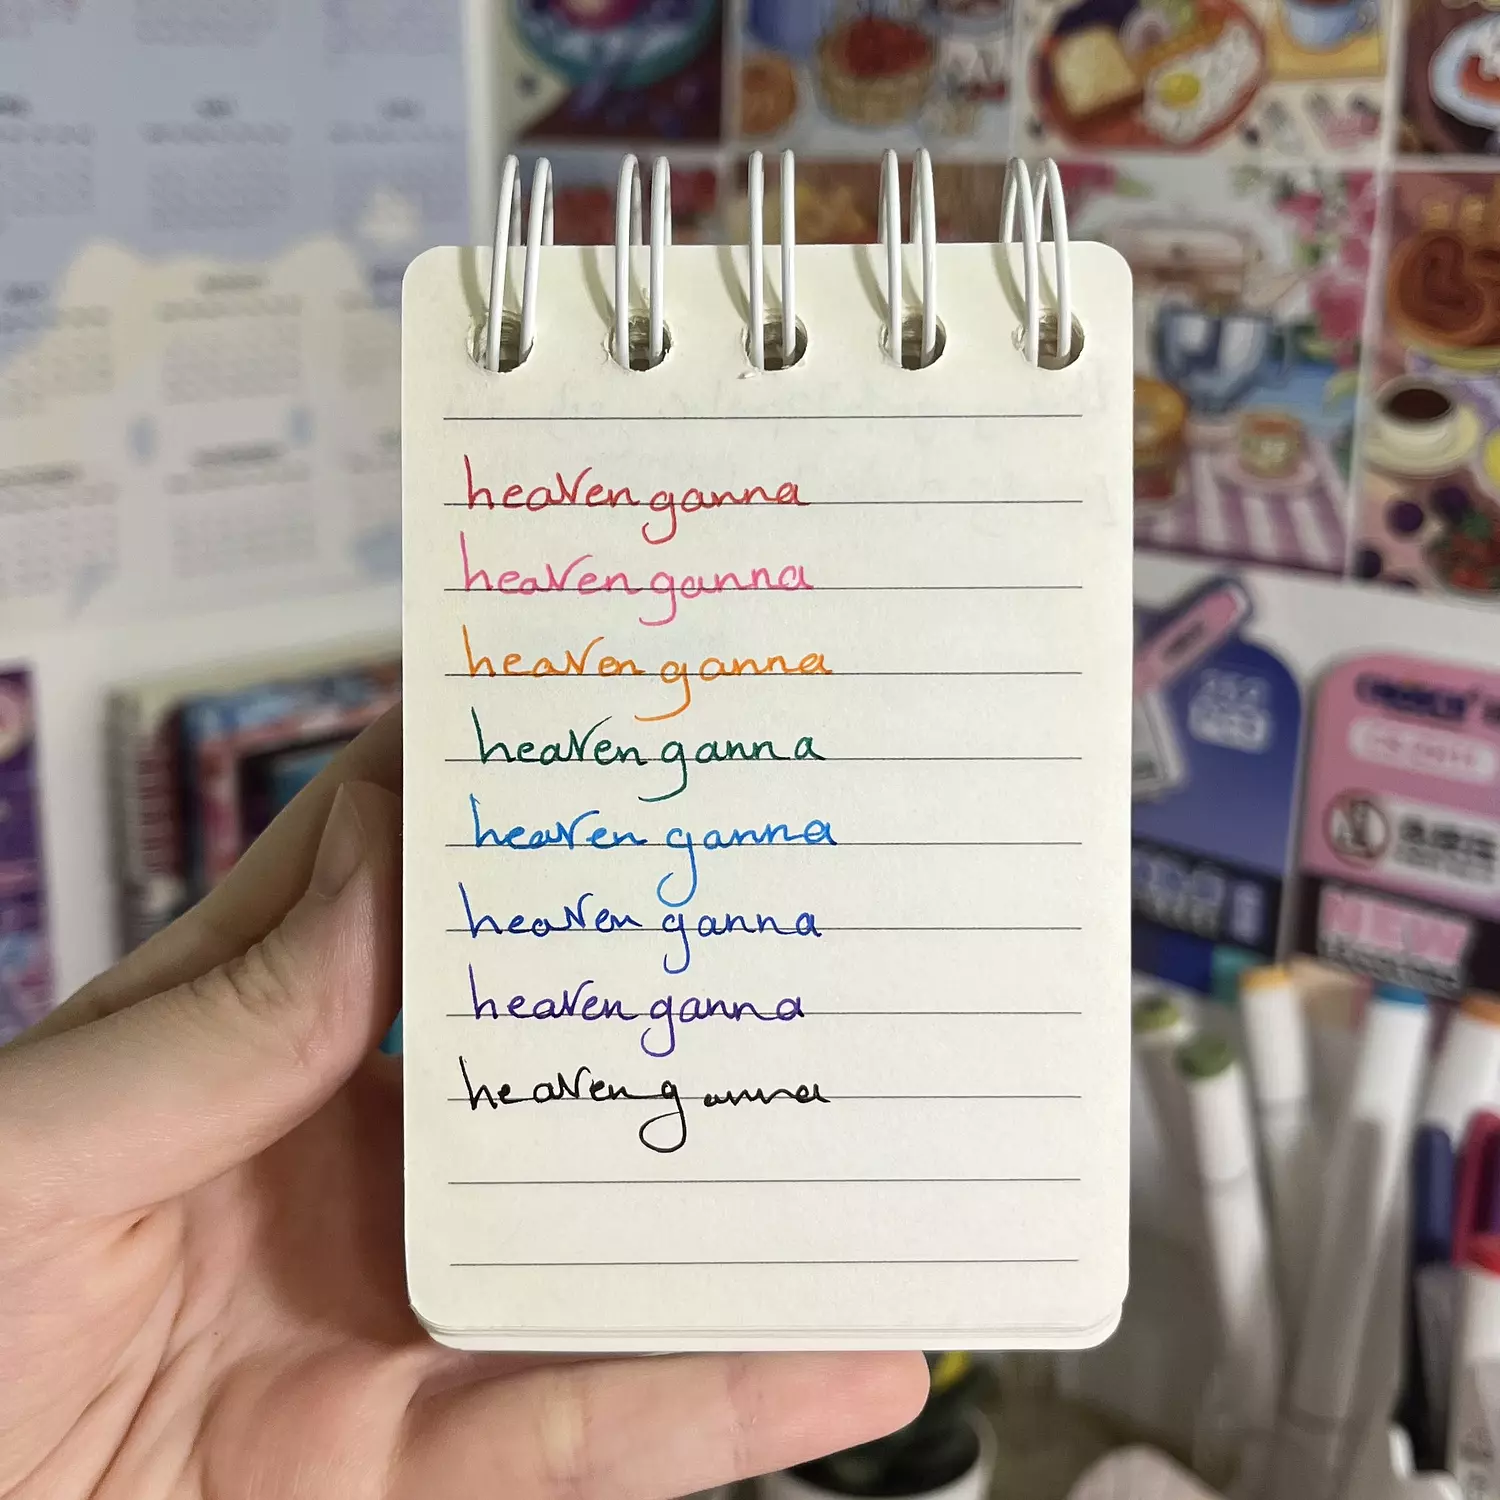 heaven ganna
heaven ganna
heaven ganna
heaven ganna
heaven ganna
heaven ganna
heaven ganna
heaven ganna
NEW